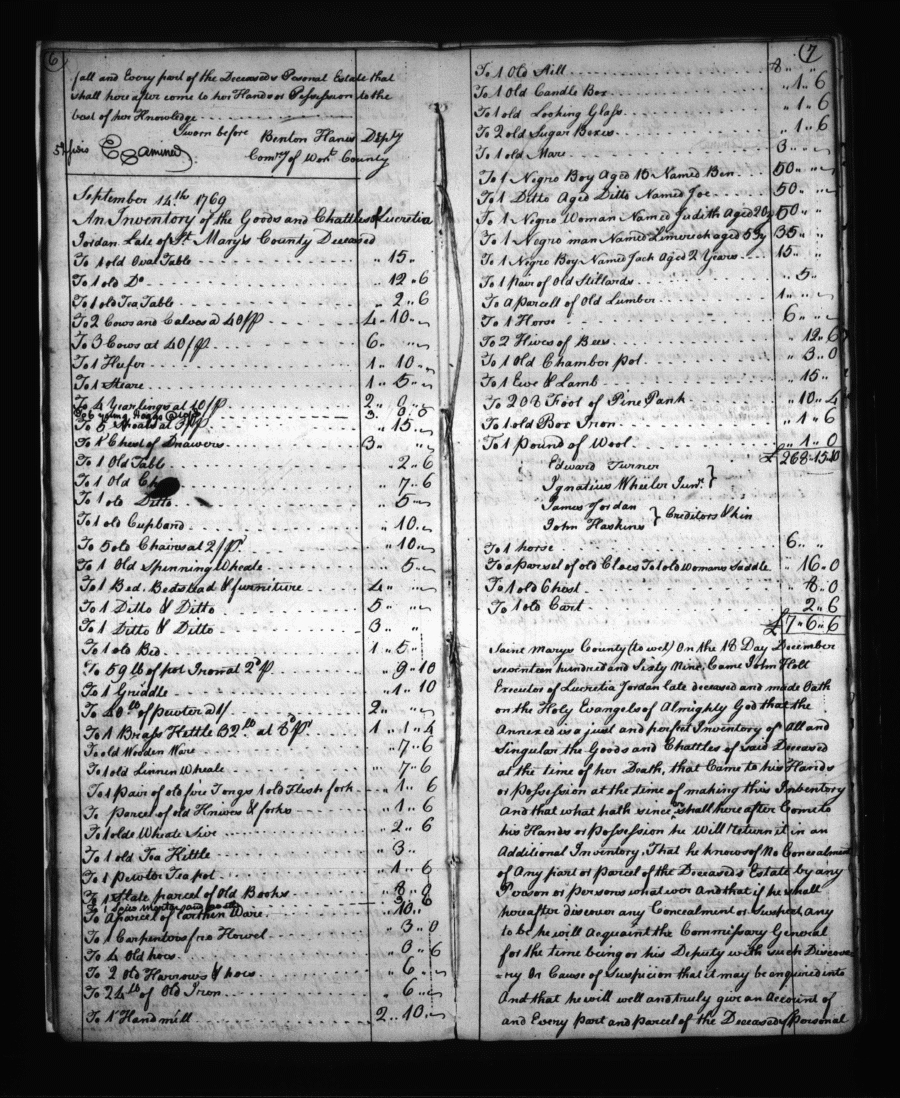 6
fall and Every part of the Deceaseds Personal Estate that
shall here after come to her Hands or Possession to the
best of her Knowledge
Sworn before Benton Flanis Dep'ty
Exãmined
Com'ry of County
September 14th 1769
An Inventory of the Goods and Chattles of Lucretia
Jordan Late of St. Marys County Deceased
To 1 old Oval Table " 15 "
To 1 old Do " 12 " 6
To 1 old Tea Table " 2 " 6
To 2 Cows and Calves @ 40/p 4 " 10 "
To 3 Cows at 40/p 6 " "
To 1 Heifer 1 " 10 "
To 1 Steare 1 " 5 "
To 4 Yearlings at 10/p 2 " 0 "
To 6 young Hogs @ 10/p 3 " 0 " 0
To 5 Shoats at 3/p " 15 "
To 1 Chest of Drawers 3 " "
To 1 Old Table " 2 " 6
To 1 Old " 7 " 6
To 1 old Ditto " 5 "
To 1 old Cupboard " 10 "
To 5 old Chaires at 2/p " 10 "
To 1 Old Spenning Wheale " 5 "
To 1 Bed, Bedstead & furniture 4 " "
To 1 Ditto & Ditto 5 " "
To 1 Ditto & Ditto 3 " "
To 1 old Bed 1 " 5 "
To 59 lb of pot Iron at 2d p " 9 " 10
To 1 Griddle " 1 " 10
To 40 lb of pewter @ 1/ 2 "
To 1 Brass Kettle 32 lb at 8d p 1 " 1 " 4
To old Wooden Ware " 7 " 6
To 1 old Linnen Wheale " 7 " 6
To 1 Pair of old fire Tongs 1 old Flesh fork " 1 " 6
To parcel of old Knives & forks " 1 " 6
To 1 olde Wheate Sive " 2 " 6
To 1 old Tea Kittle " 3 "
To 1 pewter Teapot " 1 " 6
To 1 Slate parcel of Old Books " 8 " 0
To 1 mortar and 3 " 6
To A parcel of Earthen Ware " 10 "
To 1 Carpenters Howel " 3 " 0
To 4 Old hoes " 0 " 6
To 2 Old Harrows & hoes " 6 "
To 24 lb of Old Iron " 6 "
To 1 Hand mill 2 " 10 "
7
To 1 Old Still 8 " "
To 1 Old Candle Box " 1 " 6
To 1 old Looking Glass " 1 " 6
To 2 old Sugar Boxes " 1 " 6
To 1 old Mare 3 " "
To 1 Negro Boy Aged 15 Named Ben 50 " "
To 1 Ditto Aged Ditto Named Joe 50 " "
To 1 Negro Woman Named Judith Aged 20 y 50 " "
To 1 Negro man Named Limerick aged 55 y 35 " "
To 1 Negro Boy Named Jack Aged 2 Years 15 " "
To 1 Pair of Old Stillards " 5 "
To A Parcell of Old Lumber 1 " "
To 1 Horse 6 " "
To 2 Hives of Bees " 12 " 6
To 1 Old Chamber pot " 3 " 0
To 1 Ewe & Lamb " 15 "
To 208 Foot of Pine Pank " 10 " 4
To 1 old Box Iron " 1 " 6
To 1 Pound of Wool " 1 " 0
£ 268 " 15 " 10
Edward Turner
Ignatius Wheeler Junr. }
James Jordan
John Haskins } Creditors & kin
To 1 horse 6 " "
To a parsel of old Cloes To 1 old womans Saddle " 16 " 0
To 1 old Chest " 8 " 0
To 1 old Cart 2 " 6
£ 7 " 6 " 6
Saint Marys County (to wit) On the 18 Day December
seventeen hundred and Sixty Nine, Came John Holt
Executor of Lucretia Jordan late deceased and made Oath
on the Holy Evangels of Almighty God that the
Annexed is a just and perfect Inventory of All and
Singular the Goods and Chattles of said Deceased
at the time of her Death, that Came to his Hands
or Possession at the time of making this Inventory
And that what hath since or shall here after Come to
his Hands or Possession he Will return it in an
Additional Inventory, That he knows of No Concealment
of Any part or Parcel of the Deceaseds Estate by any
Person or Persons what ever And that if he shall
hereafter discover any Concealment or Suspect any
to be he will Acquaint the Commissary General
for the time being or his Deputy with such Discove
=ry Or Cause of Suspicion that it may be enquired into
And that he will well and truly give an Account of
and Every Part and parcel of the Deceaseds Personal